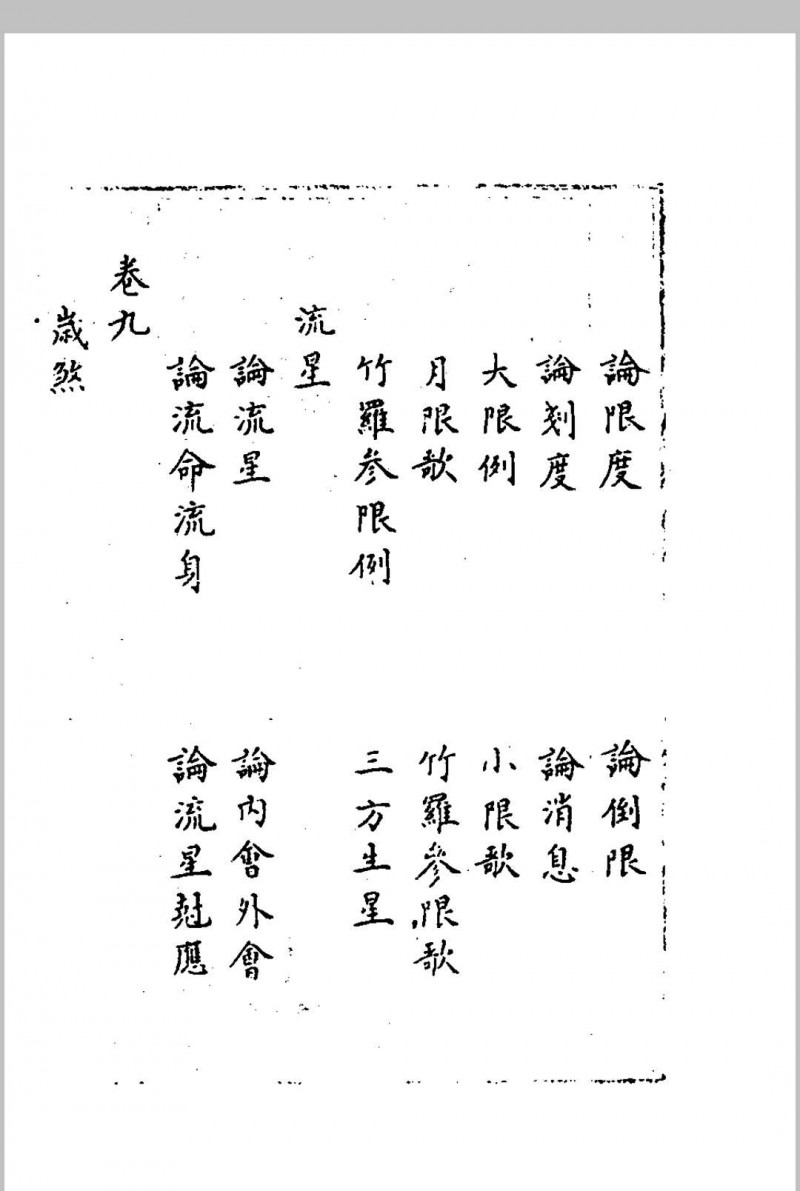 論限度　論倒限
論刻度　論消息
大限例　小限歌
月限歌　竹羅參限歌
竹羅参限例　三方生星
流星
論流星　論内會外會
論流命流身　論流星尅應
卷九
歳煞